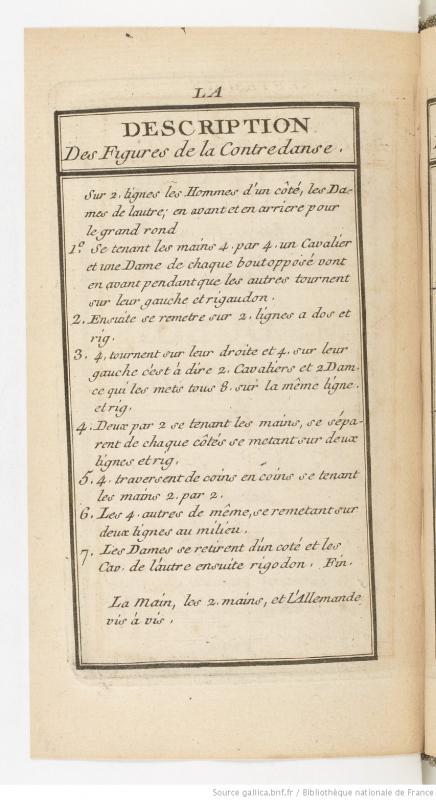 LA
DESCRIPTION
Des Figures de la Contredanse.
Sur 2. lignes les Hommes d'un côté, les Da-
mes de lautre; en avant et en arriere pour
le grand rond
1.º Se tenant les mains 4. par 4. un Cavalier
et une Dame de chaque bout opposé vont
en avant pendant que les autres tournent
sur leur gauche et rigaudon.
2. Ensuite se remetre sur 2. lignes a dos et
rig.
3. 4, tournent sur leur droite et 4. sur leur
gauche c'est à dire 2. Cavaliers et 2 Dam.
ce qui les mets tous 8. sur la même ligne.
et rig.
4. Deux par 2 se tenant les mains, se sépa-
rent de chaque côtés se metant sur deux
lignes et rig.
5. 4. traversent de coins en coins se tenant
les mains 2. par 2.
6. Les 4 autres de même, se remetant sur
deux lignes au milieu.
7. Les Dames se retirent d'un coté et les
Cav. de l'autre ensuite rigodon. Fin.
La Main, les 2. mains, et L'Allemande
vis à vis.
Source gallica.bnf.fr / Bibliothèque nationale de France